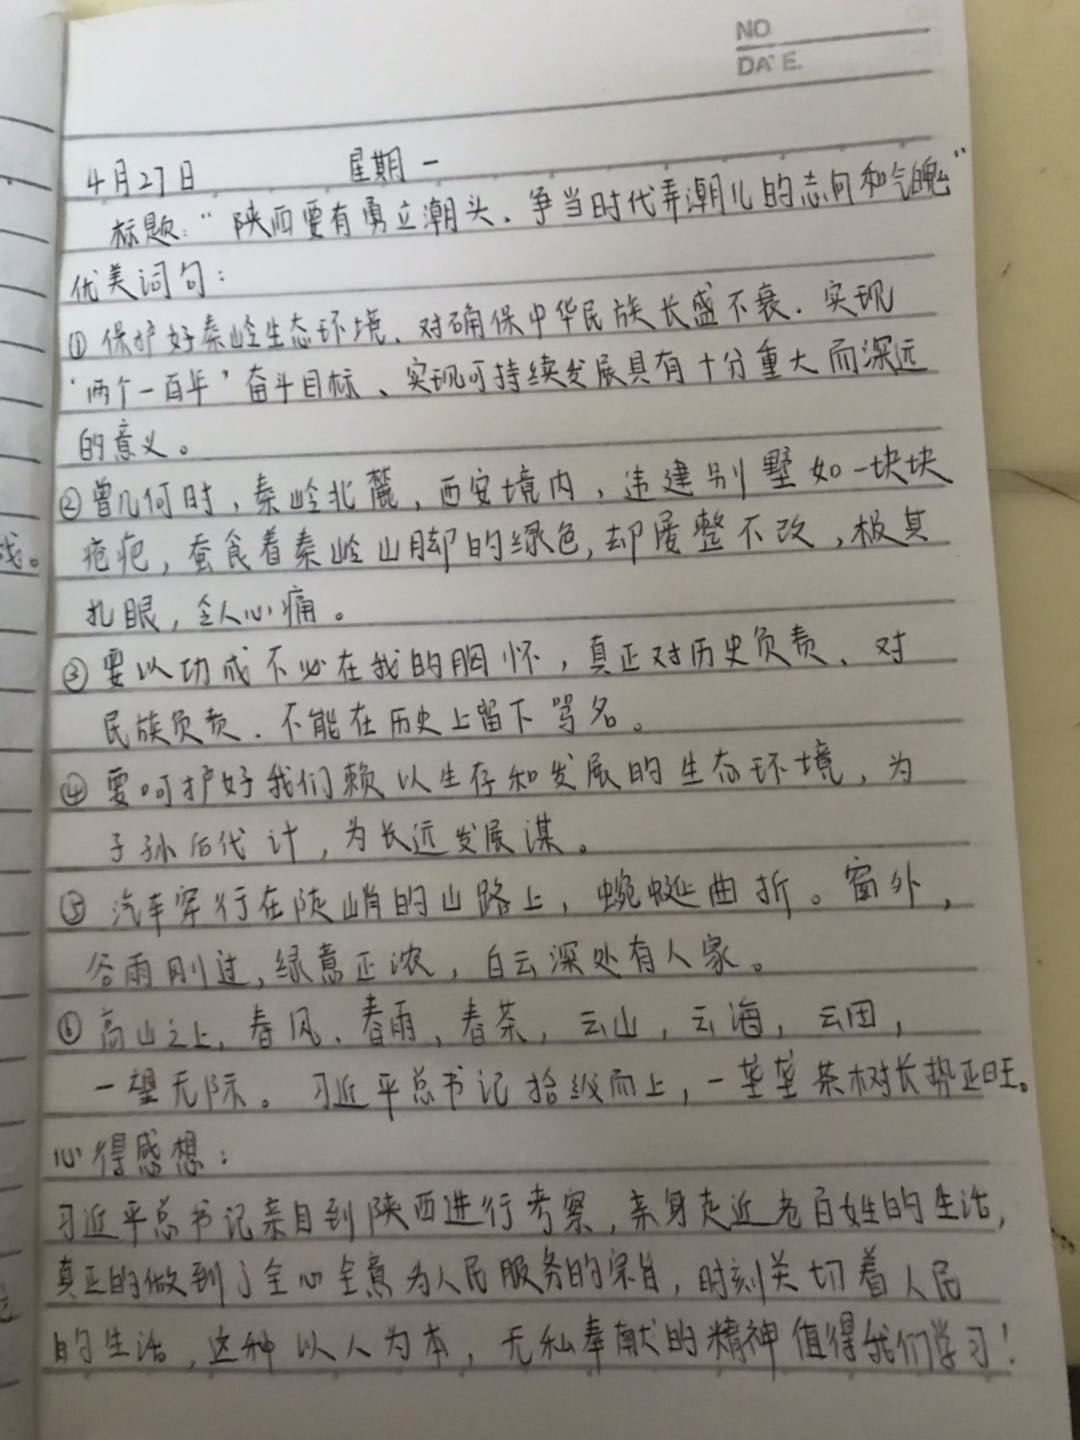 NO
DATE.
4月27日 星期一
标题:“陕西要有勇立潮头、争当时代弄潮儿的志向和气魄”
优美词句:
①保护好秦岭生态环境、对确保中华民族长盛不衰、实现
“两个一百年”奋斗目标、实现可持续发展具有十分重大而深远
的意义。
②曾几何时,秦岭北麓,西安境内,违建别墅如一块块
疮疤,蚕食着秦岭山脚的绿色,却屡整不改,极其
扎眼,令人心痛。
③要以功成不必在我的胸怀,真正对历史负责、对
民族负责、不能在历史上留下骂名。
④要呵护好我们赖以生存和发展的生态环境,为
子孙后代计,为长远发展谋。
⑤汽车穿行在陡峭的山路上,蜿蜒曲折。窗外,
谷雨刚过,绿意正浓,白云深处有人家。
⑥高山之上,春风、春雨,春茶,云山,云海,云田,
一望无际。习近平总书记拾级而上,一垄垄茶树长势正旺。
心得感想:
习近平总书记亲自到陕西进行考察,亲身走近老百姓的生活,
真正的做到了全心全意为人民服务的宗旨,时刻关切着人民
的生活,这种以人为本,无私奉献的精神值得我们学习!